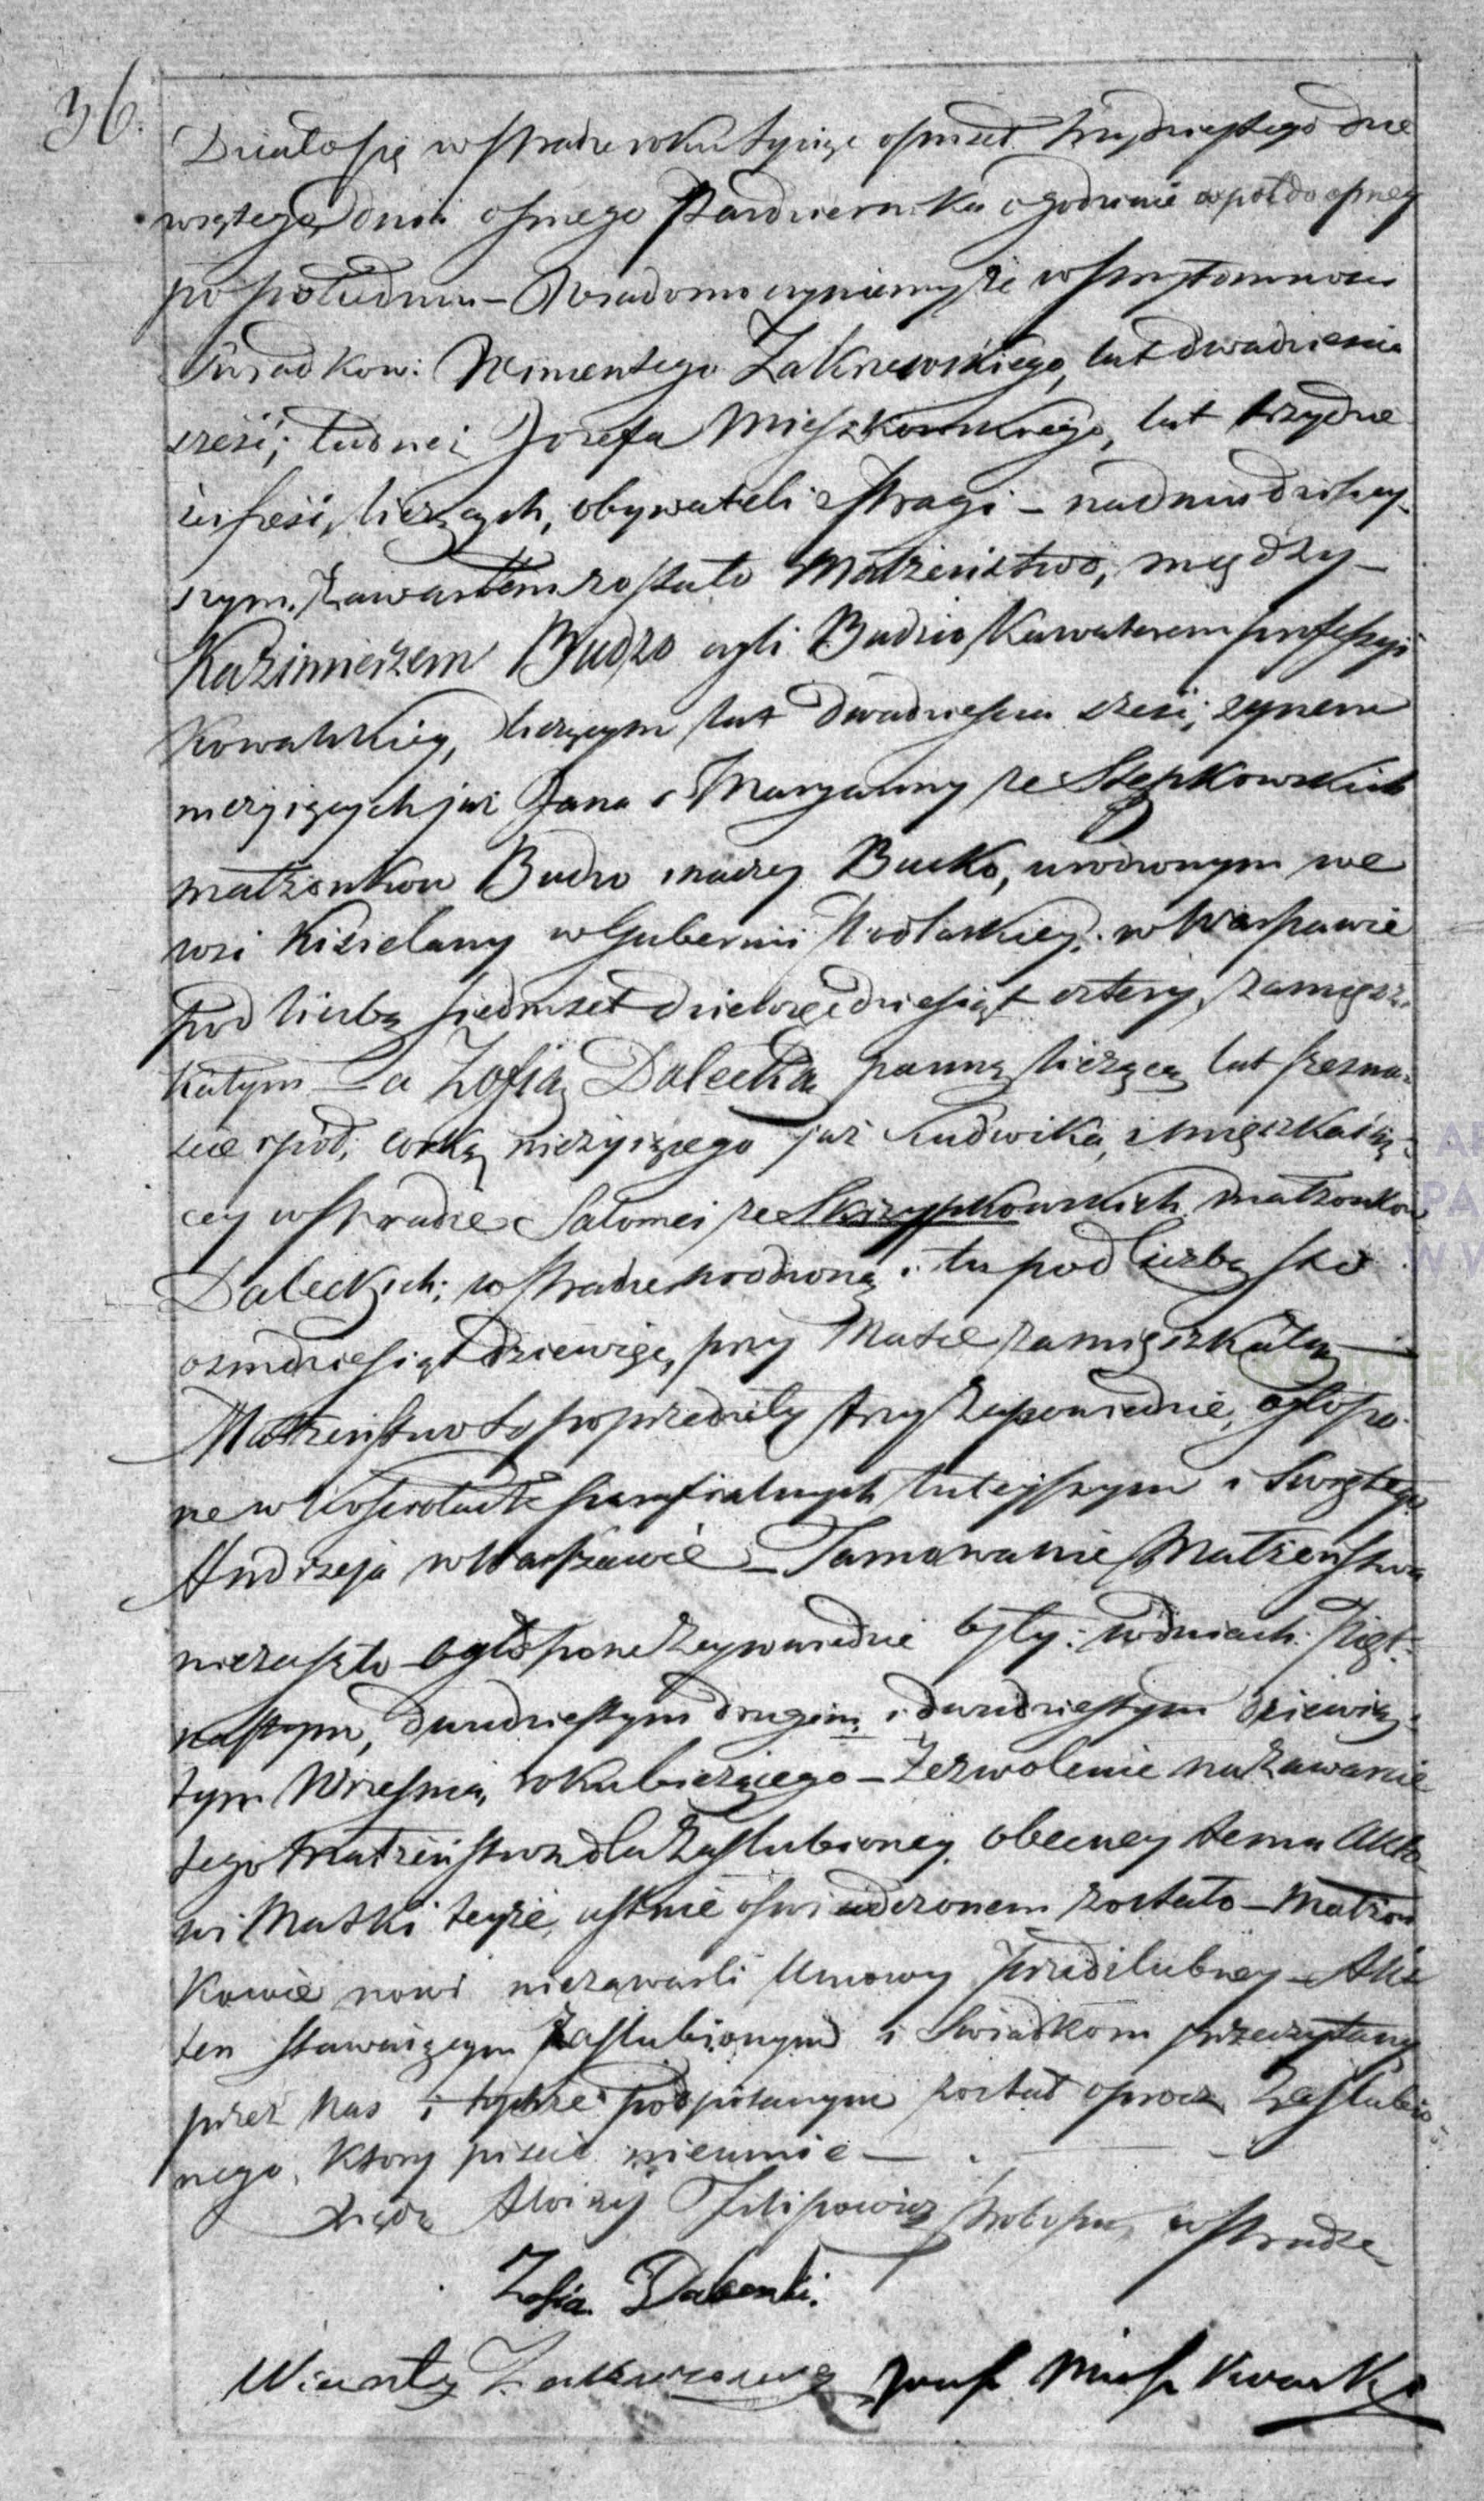 36.
Działo się w Pradze roku tysiąc ośmset trzydziestego dzie
wiątego, dnia osmego Pazdziernika o godzinie wpół do osmey
po południu — Wiadomo czyniemy, że w przytomnosci
Swiadkow: Wincentego Zakrzewskiego, lat dwadziescia
sześć; tudzież Jozefa Mieszkowskiego, lat trzydzie
ści sześć, liczących, obywateli z Pragi — na dniu dzisiey-
szym, zawartem zostało Małżeństwo, między —
Kazimierzem Budzo czyli Budzio, Kawalerem professyi
Kowalskiey, liczącym lat dwadziescia sześć; synem
nieżyiących już Jana i Maryanny ze Stępkowskich
małżonkow Budzo inaczey Bućko, urodzonym we
wsi Kisielany w Gubernii Podlaskiey; w Warszawie
pod liczbą siedmset dziewięćdziesiąt cztery, zamiesz-
kałym — a Zofią Dalecką panną liczącą lat szesna-
ście i pół; corką nieżyiącego już Ludwika, i mięszkaiią-
cey w Pradze Salomei ze Skrzypkowskich małżonkow
Daleckich; w Pradze urodzoną i tu pod liczbą sto
ozmdziesiąt dziewięć, przy Matce zamięszkałą —
Małżeństwo to poprzedziły trzy Zapowiedzie, ogłoszo-
ne w Kosciołach parafialnych tuteyszym i Swiętego
Andrzeja w Warszawie — Tamowanie Małżeństwa
nie zaszło — ogłoszone Zapowiedzie były: w dniach: Pięt-
nastym, dwudziestym drugim, i dwudziestym dziewią-
tym Wrzesnia, roku bieżącego — Zezwolenie na zawarcie
tego Małżeństwa dla Zaslubioney, obecney temu Akto-
wi Matki teyże, ustnie oświadczonem zostało — Małżon
kowie nowi niezawarli Umowy przedślubney — Akt
ten stawaiącym Zaslubionym i Swiadkom przeczytany
przez Nas i tychże podpisanym został oprocz Zaslubio-
nego, ktory pisać nieumie —
Xiądz Alojzy Filipowicz Proboszcz w Pradze
Zofia Dalecki.
Wincenty Zakrzewski Jozef Mieszkowski